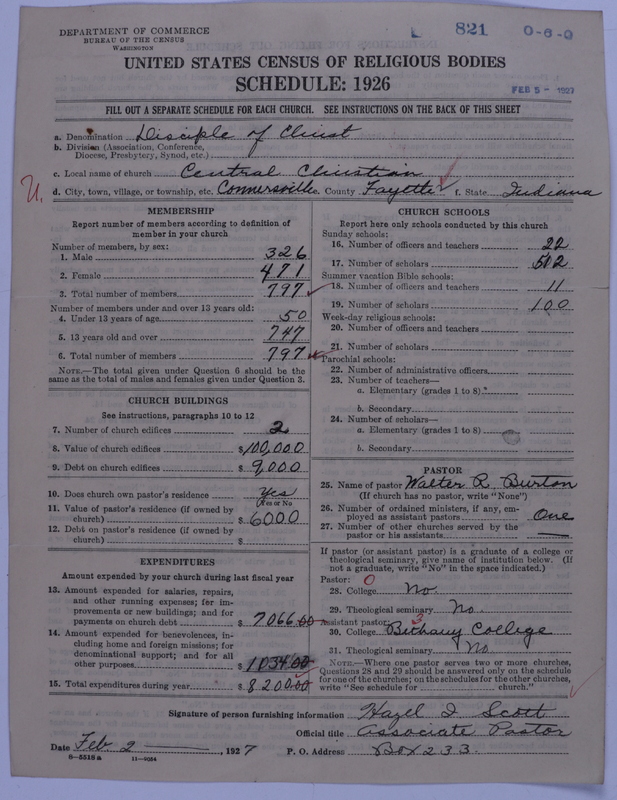 DEPARTMENT OF COMMERCE
BUREAU OF THE CENSUS
WASHINGTON
821 0-6-0
UNITED STATES CENSUS OF RELIGIOUS BODIES
SCHEDULE: 1926
FEB 5 - 1927
FILL OUT A SEPARATE SCHEDULE FOR EACH CHURCH. SEE INSTRUCTIONS ON THE BACK OF THIS SHEET
a. Denomination Disciple of Christ
b. Division (Association, Conference,
Diocese, Presbytery, Synod, etc.)
c. Local name of church Central Christian
d. City, town, village, or township, etc. Connersville e. County Fayette f. State Indiana
U.
MEMBERSHIP
Report number of members according to definition of
member in your church
Number of members, by sex:
1. Male 326
2. Female 471
3. Total number of members 797
Number of members under and over 13 years old:
4. Under 13 years of age 50
5. 13 years old and over 747
6. Total number of members 797
NOTE.—The total given under Question 6 should be
same as the total of males and females given under Question 3.
CHURCH BUILDINGS
See instructions, paragraphs 10 to 12
7. Number of church edifices 2
8. Value of church edifices $100,000
9. Debt on church edifices $9,000
10. Does church own pastor's residence Yes
(Yes or No)
11. Value of pastor's residence (if owned by
church) $6000
12. Debt on pastor's residence (if owned by
church) $
EXPENDITURES
Amount expended by your church during last fiscal year
13. Amount expended for salaries, repairs,
and other running expenses; for im-
provements or new buildings; and for
payments on church debt $7066.00
14. Amount expended for benevolences, in-
cluding home and foreign missions; for
denominational support; and for all
other purposes $1034.00
15. Total expenditures during year $8200.00
CHURCH SCHOOLS
Report here only schools conducted by this church
Sunday schools:
16. Number of officers and teachers 22
17. Number of scholars 502
Summer vacation Bible schools:
18. Number of officers and teachers 11
19. Number of scholars 100
Week-day religious schools:
20. Number of officers and teachers
21. Number of scholars
Parochial schools:
22. Number of administrative officers
23. Number of teachers—
a. Elementary (grades 1 to 8)
b. Secondary
24. Number of scholars—
a. Elementary (grades 1 to 8)
b. Secondary
PASTOR
25. Name of pastor Walter R. Burton
(If church has no pastor, write "None")
26. Number of ordained ministers, if any, em-
ployed as assistant pastors One
27. Number of other churches served by the
pastor or his assistants —
If pastor (or assistant pastor) is a graduate of a college or
theological seminary, give name of institution below. (If
not a graduate, write "No" in the space indicated.)
Pastor: 0
28. College No.
29. Theological seminary No
Assistant pastor: 3
30. College Bethany College
31. Theological seminary No
NOTE.—Where one pastor serves two or more churches,
Questions 28 and 29 should be answered only on the schedule
for one of the churches; on the schedules for the other churches,
write "See schedule for church."
Signature of person furnishing information Hazel I Scott
Official title Associate Pastor
Date Feb 2, 1927 P. O. Address Box 233.
8-5518a 11-9054